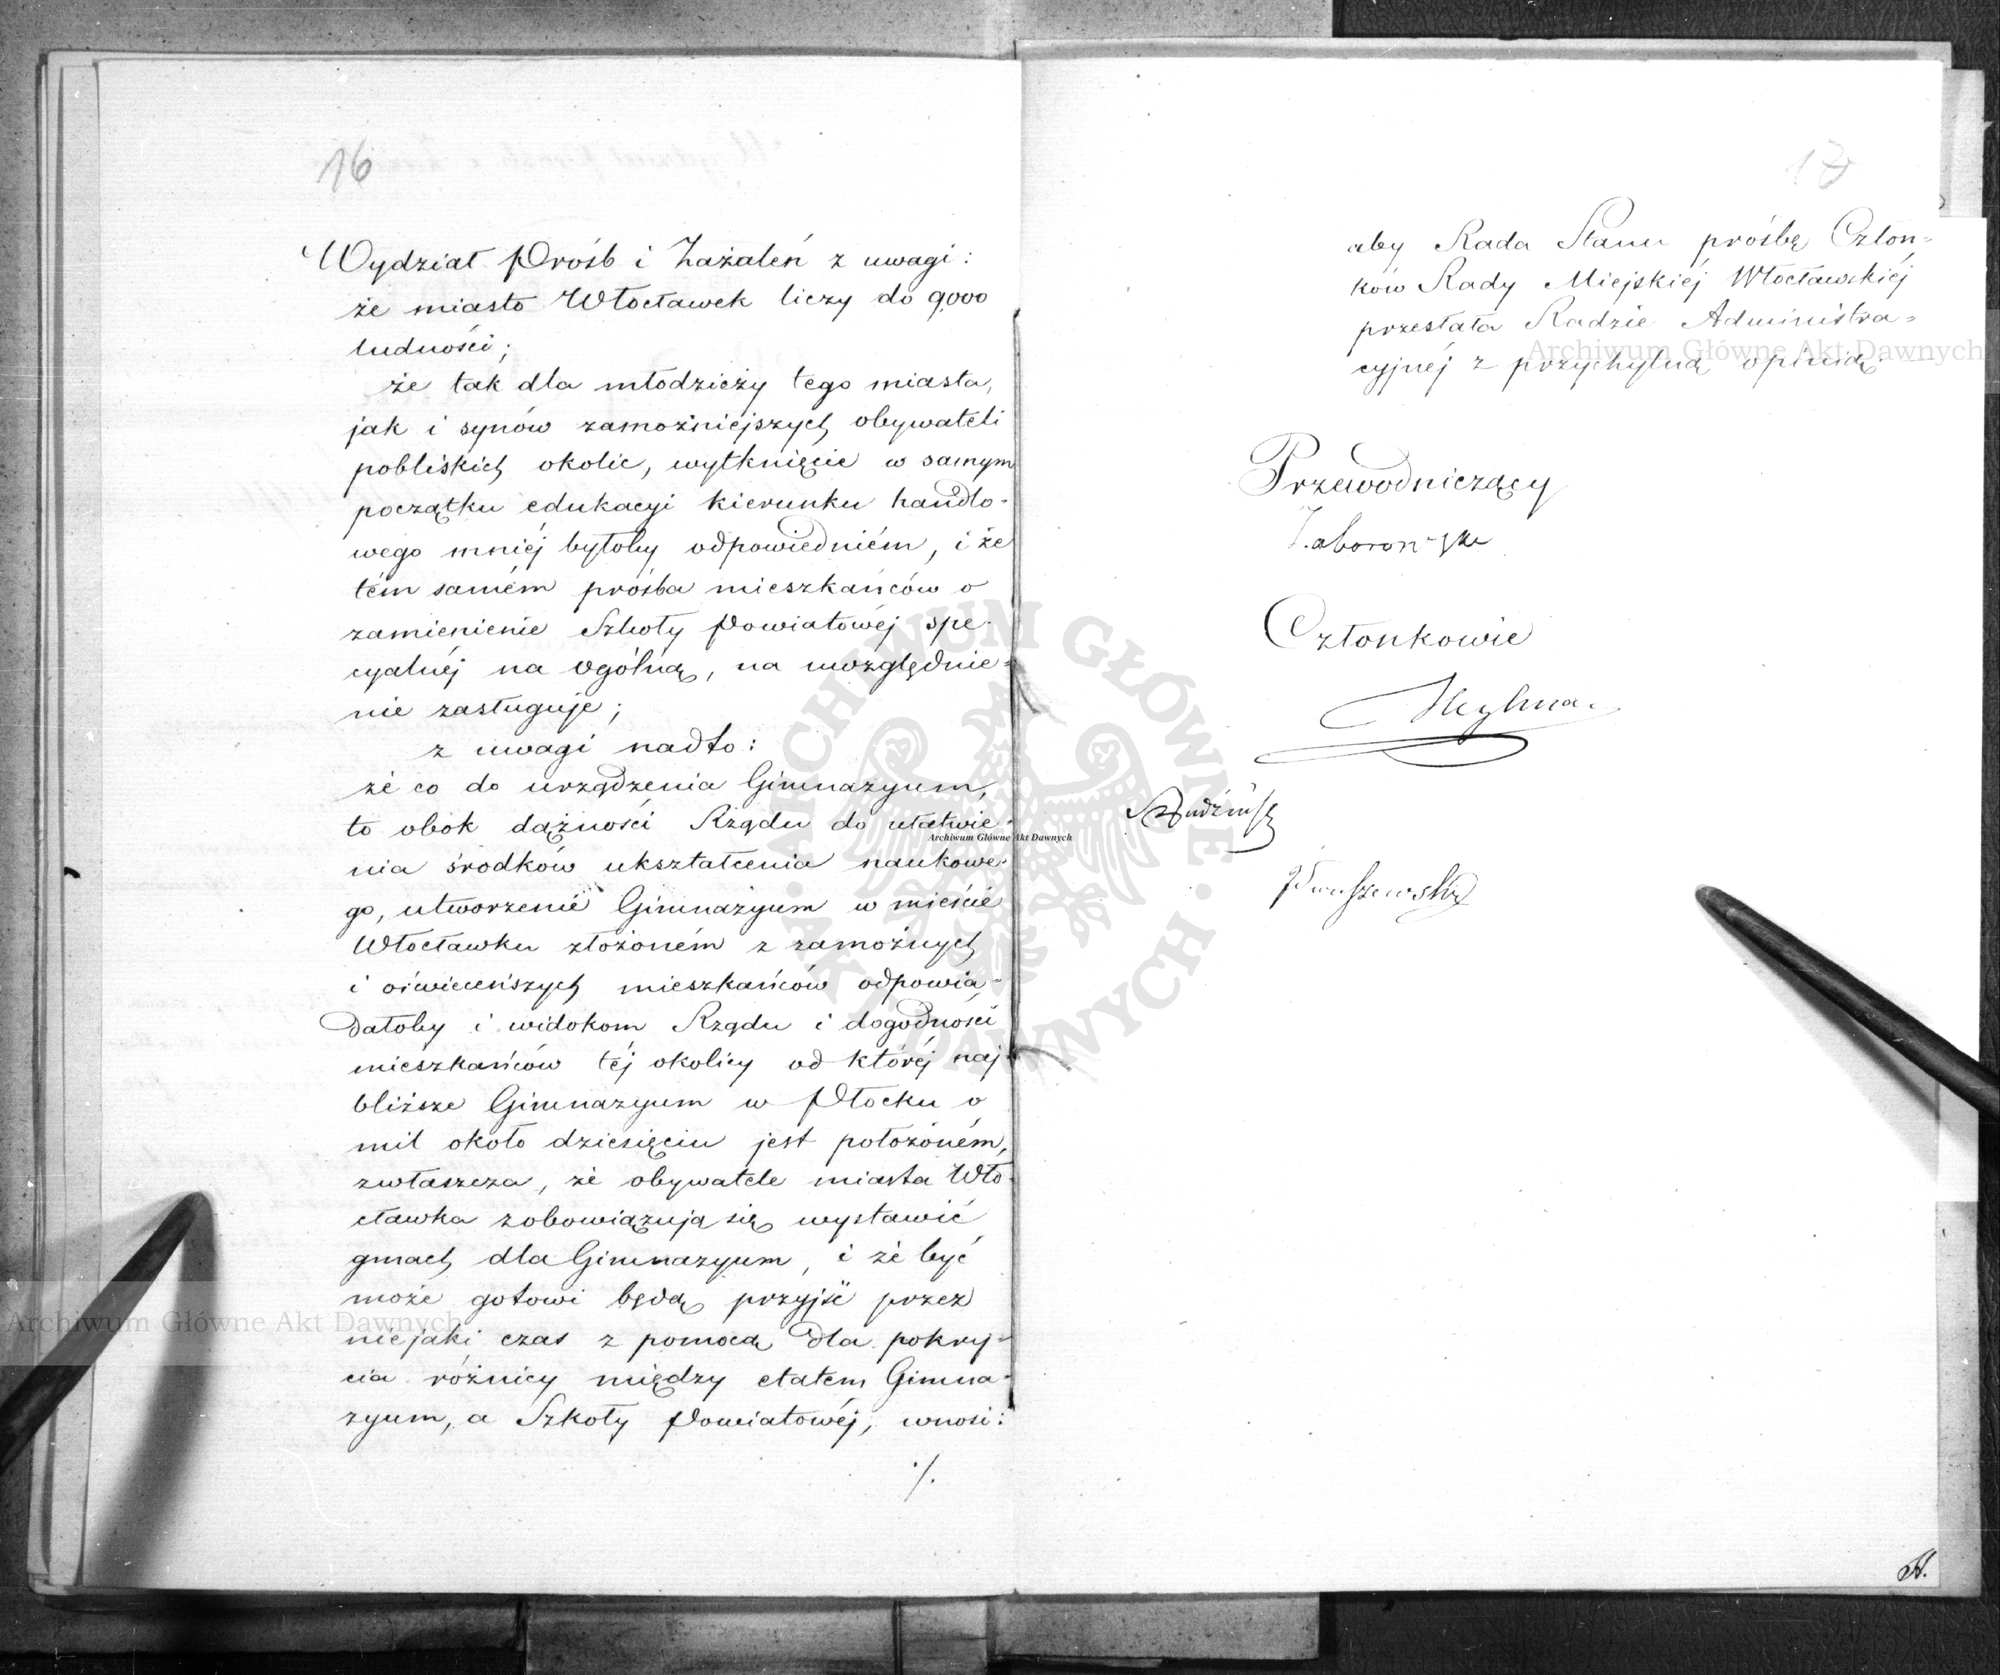 16
Wydział Próśb i Zażaleń z uwagi:
że miasto Włocławek liczy do 9000
ludności;
że tak dla młodzieży tego miasta,
jak i synów zamożniejszych obywateli
pobliskich okolic, wytknięcie w samym
początku edukacyi kierunku handlo-
wego mniéj byłoby odpowiedniém, i że
tém samém prośba mieszkańców o
zamienienie Szkoły Powiatowéj spe-
cyalnéj na ogólną, na uwzględnie-
nie zasługuje;
z uwagi nadto:
że co do urządzenia Gimnazyum,
to obok dążności Rządu do ułatwie-
nia środków ukształcenia naukowe-
go, utworzenie Gimnazyum w mieście
Włocławku złożoném z zamożnych
i oświeceńszych mieszkańców odpowia-
dałoby i widokom Rządu i dogodności
mieszkańców téj okolicy od któréj naj-
bliższe Gimnazyum w Płocku o
mil około dziesięciu jest położoném,
zwłaszcza, że obywatele miasta Wło-
cławka zobowiązują się wystawić
gmach dla Gimnazyum, i że być
może gotowi będą przyjść przez
niejaki czas z pomocą dla pokry-
cia różnicy między etatem Gimna-
zyum, a Szkoły Powiatowéj, wnosi:
./.
17
aby Rada Stanu prośbę Człon-
ków Rady Miejskiéj Włocławskiéj
przesłała Radzie Administra-
cyjnéj z przychylną opinią.
Przewodniczący
Zaborowski
Członkowie
Heylman
Archiwum Główne Akt Dawnych
Archiwum Główne Akt Dawnych
Archiwum Główne Akt Dawnych
ARCHIWUM GŁÓWNE · AKT DAWNYCH ·